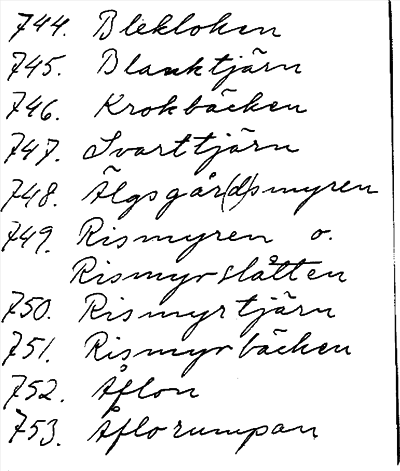 744. Blekloken
745. Blanktjärn
746. Krokbäcken
747. Svarttjärn
748. Älgsgår(d)smyren
749. Rismyren o.
Rismyrslåtten
750. Rismyrtjärn
751. Rismyrbäcken
752. Åflon
753. Åflorumpan